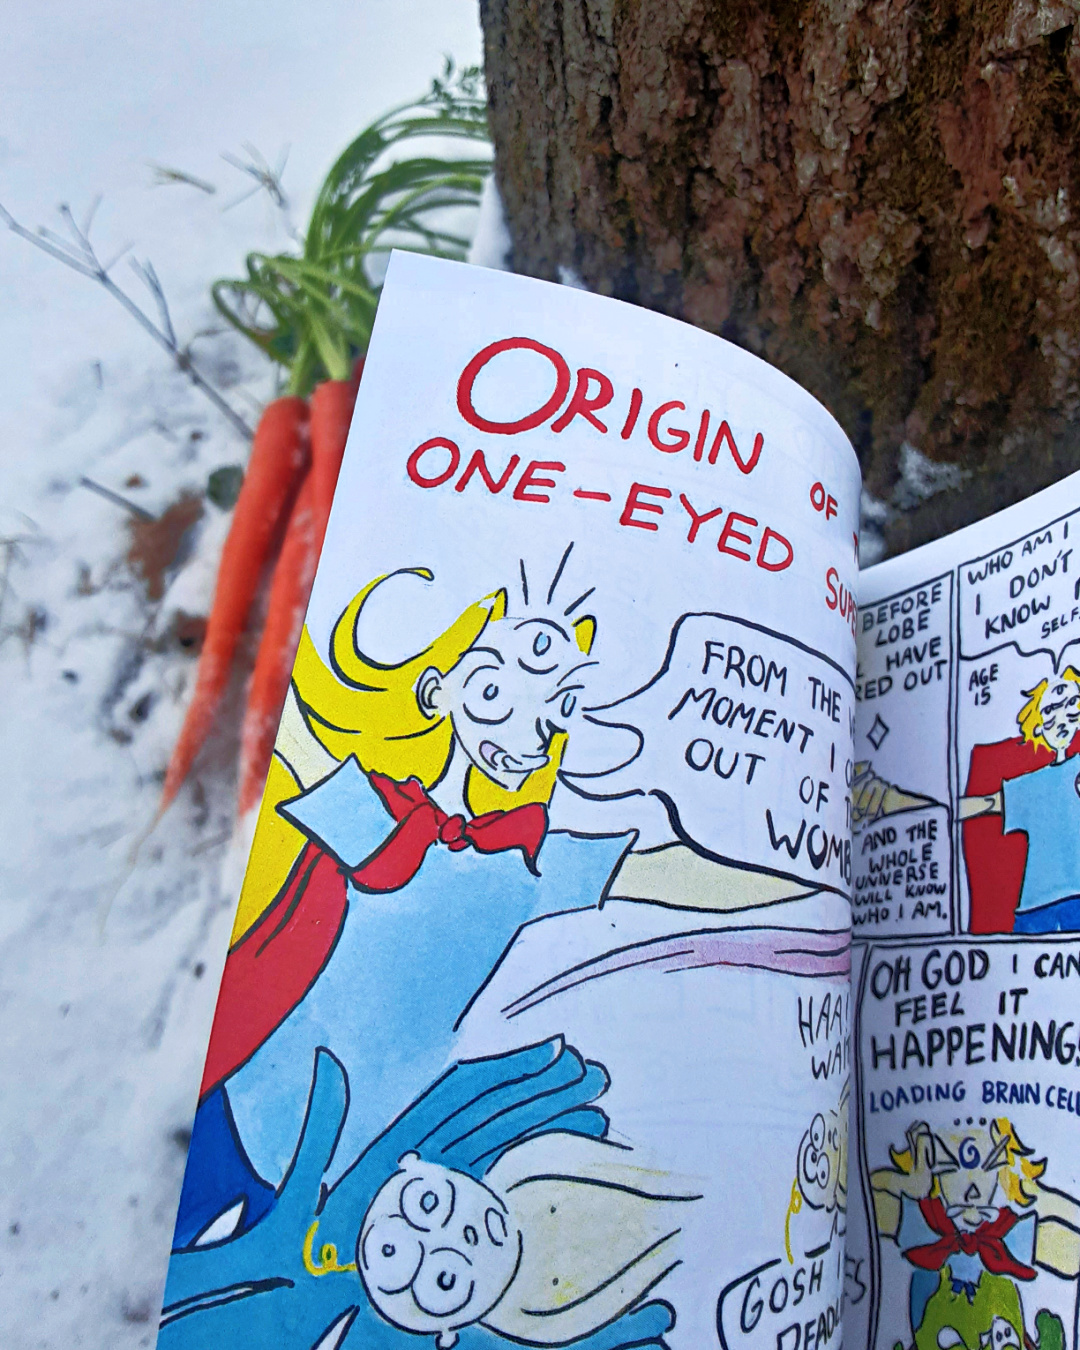 ORIGIN OF
ONE-EYED
FROM THE
MOMENT I
OUT OF
WOMB
HAA
GOSH
BEFORE
LOBE
HAVE
OUT
AND THE
WHOLE
UNIVERSE
WILL KNOW
WHO I AM.
WHO AM I
I DON'T
KNOW
SELF
AGE
15
OH GOD I CAN
FEEL IT
HAPPENING
LOADING BRAIN CELL